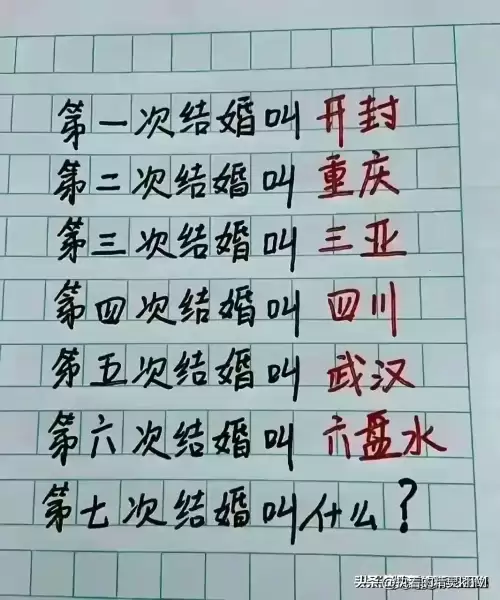 第一次结婚叫 开封
第二次结婚叫 重庆
第三次结婚叫 三亚
第四次结婚叫 四川
第五次结婚叫 武汉
第六次结婚叫 六盘水
第七次结婚叫什么？
头条